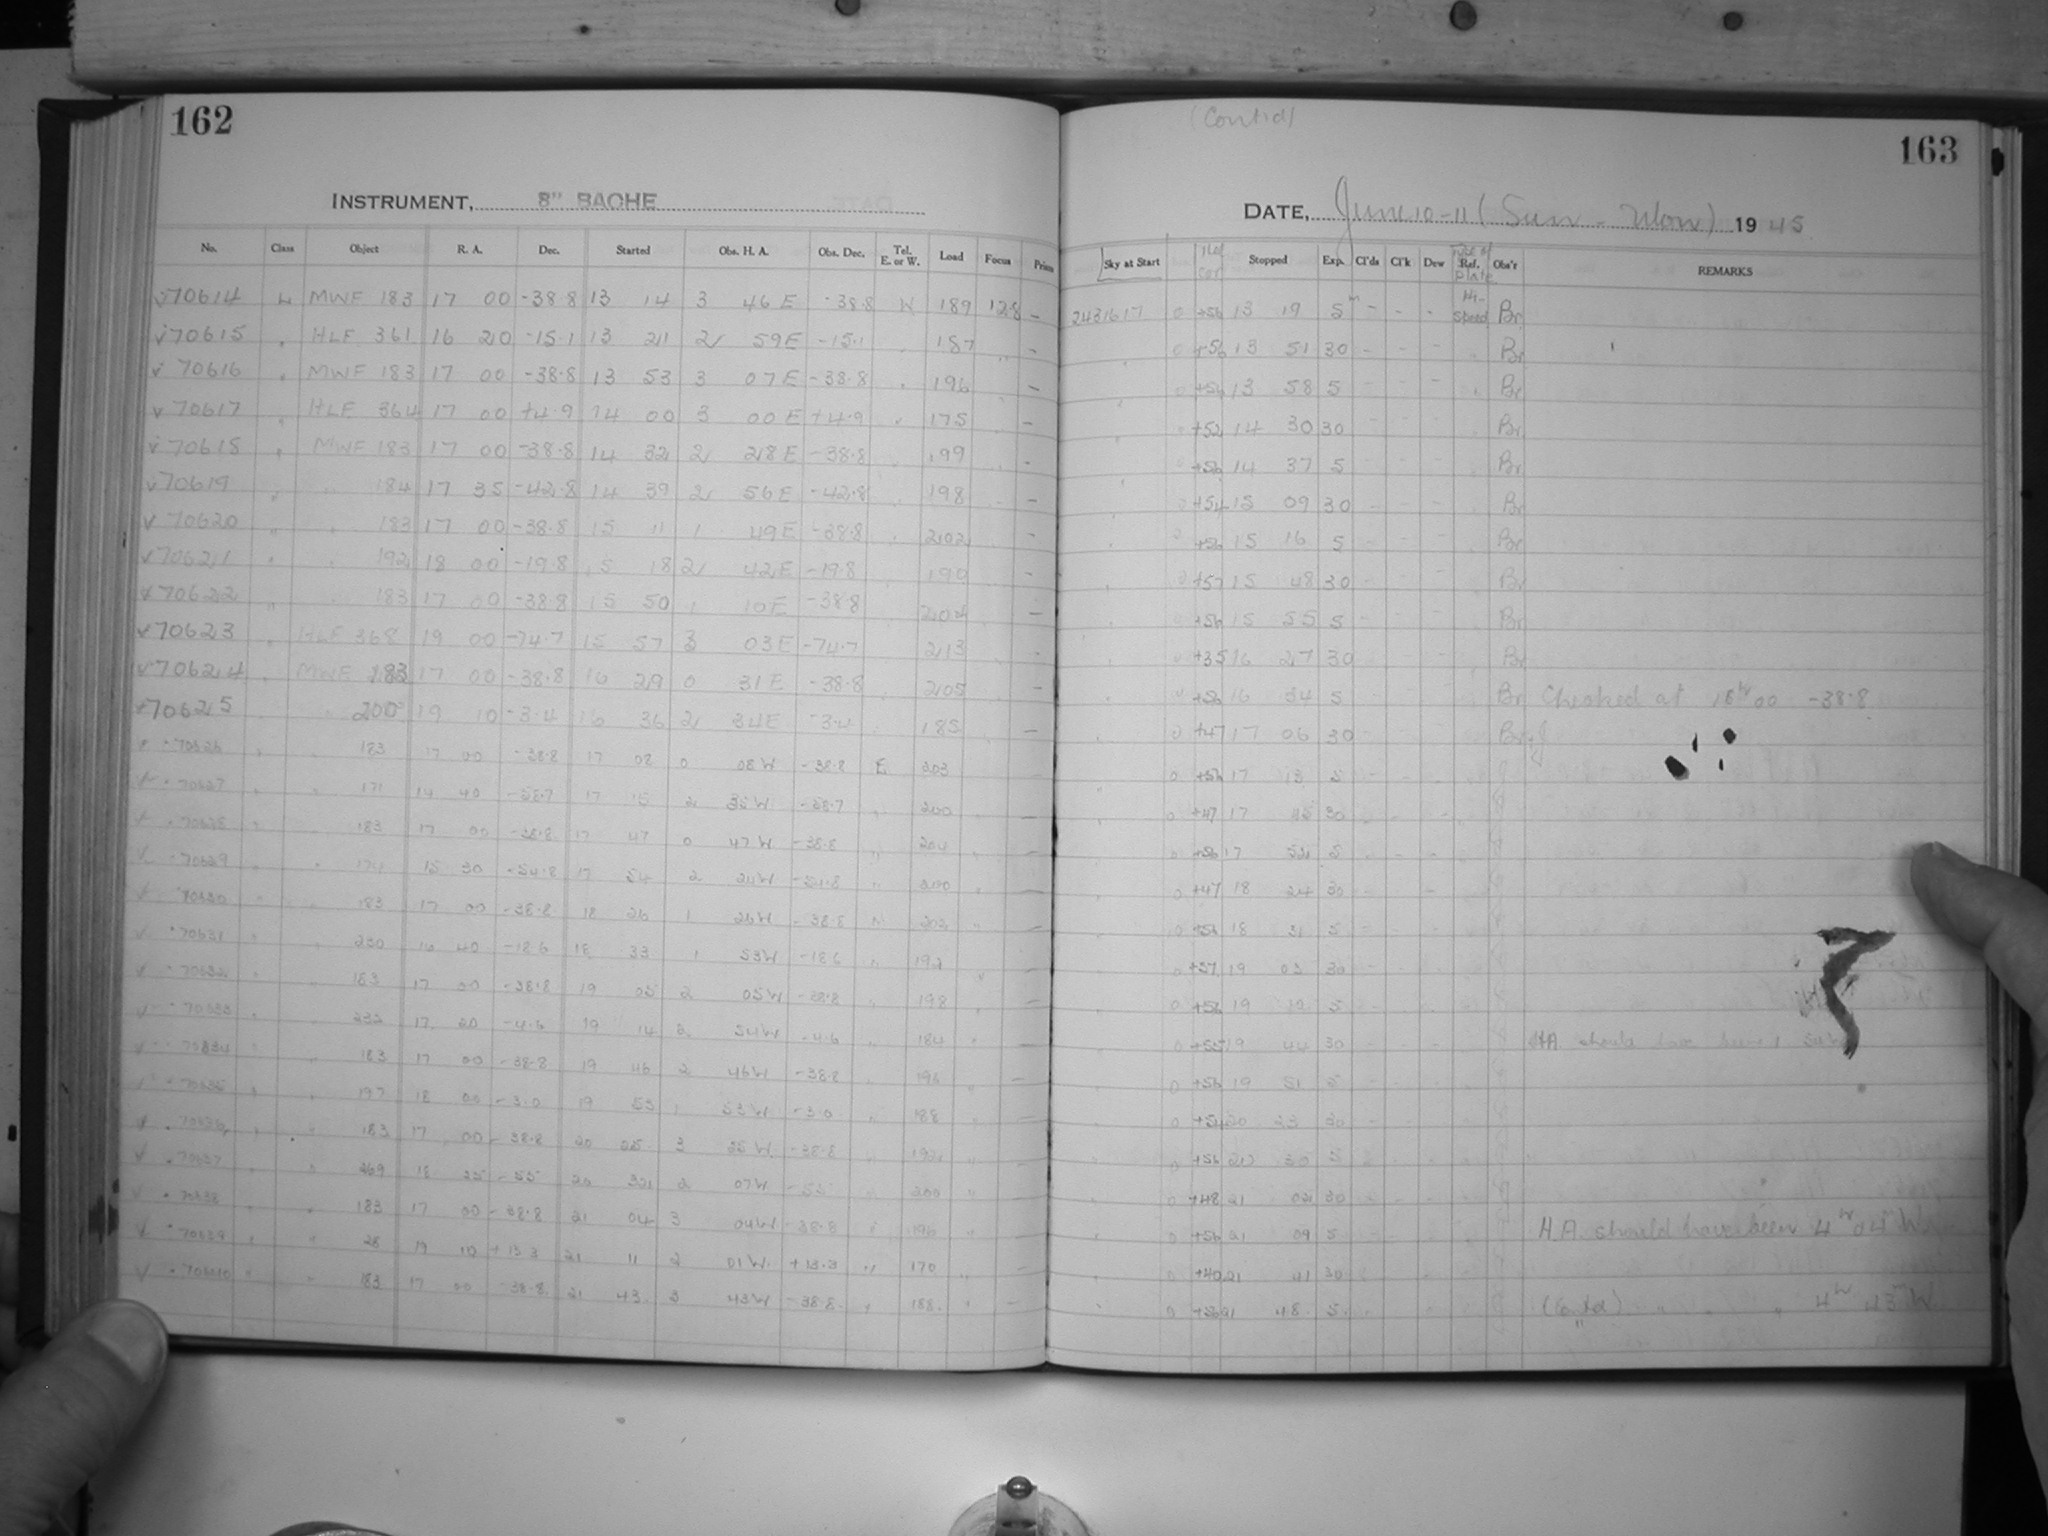 162
INSTRUMENT, 8" BACHE
No. Class Object R. A. Dec. Started Obs. H. A. Obs. Dec. Tel. E. or W. Load Focus Prism
70614 MWF 183 17 00 -38.8 13 14 3 46 E -38.8 W 189 12.8 -
70615 HLF 361 16 20 -15.1 13 21 2 59 E -15.1 187 -
70616 MWF 183 17 00 -38.8 13 53 3 07 E -38.8 196 -
70617 HLF 364 17 00 +4.9 14 00 3 00 E +4.9 175 -
70618 MWF 183 17 00 -38.8 14 32 2 28 E -38.8 199 -
70619 184 17 35 -42.8 14 39 2 56 E -42.8 198 -
70620 183 17 00 -38.8 15 11 1 49 E -38.8 202 -
70621 192 18 00 -19.8 15 18 2 42 E -19.8 190 -
70622 183 17 00 -38.8 15 50 1 10 E -38.8 204 -
70623 HLF 368 19 00 -74.7 15 57 3 03 E -74.7 213 -
70624 MWF 183 17 00 -38.8 16 29 0 31 E -38.8 205 -
70625 200 19 10 -3.4 16 36 2 34 E -3.4 185 -
70626 183 17 00 -38.8 17 08 0 08 W -38.8 E 203
70627 171 14 40 -58.7 17 15 2 35 W -58.7 200
70628 183 17 00 -38.8 17 47 0 47 W -38.8 204
70629 15 30 -54.8 17 54 2 24 W -54.8
70630 183 17 00 -38.8 18 26 1 26 W -38.8 202
70631 230 16 40 -18.6 18 33 1 53 W -18.6 192
70632 183 17 00 -38.8 19 05 2 05 W -38.8 198
70633 232 17 20 -4.6 19 14 2 54 W -4.6 184
70634 183 17 00 -38.8 19 46 2 46 W -38.8 196
70635 197 18 00 -3.0 19 53 1 53 W -3.0 188
70636 183 17 00 -38.8 20 25 3 25 W -38.8 192
70637 269 18 25 -55 20 32 2 07 W -55 200
70638 183 17 00 -38.8 21 04 3 04 W -38.8 196
70639 28 19 10 +13.3 21 11 2 01 W +13.3 170
70640 183 17 00 -38.8 21 43 3 43 W -38.8 188
(Contd)
163
DATE, June 10-11 (Sun - Mon) 1945
Sky at Start Stopped Exp. Cl'ds Cl'k Dew Ref. plate Obs'r REMARKS
2431617 0 +56 13 19 5m - - - Hi-speed Br
0 +56 13 51 30 - - - Br
0 +56 13 58 5 - - - Br
+52 14 30 30 Br
+56 14 37 5 - - - Br
+54 15 09 30 - - - Br
+56 15 16 5 - - - Br
+57 15 48 30 - - - Br
+56 15 55 5 Br
+35 16 27 30 Br
+56 16 34 5 Br Checked at 18h 00 -38.8
0 +47 17 06 30 Br
0 +56 17 13 5
0 +47 17 45 30
0 +56 17 52 5
0 +47 18 24 30
0 +56 18 31 5
0 +57 19 03 30
0 +56 19 12 5
0 +55 19 44 30 HA should have been 1
0 +56 19 51 5
0 20 23 30
0 +56 20 30 5
0 +48 21 02 30
0 +56 21 09 5 H.A. should have been 4h 04m W
0 +40 21 41 30
0 +56 21 48 5 (Contd) " " " 4h 43m W